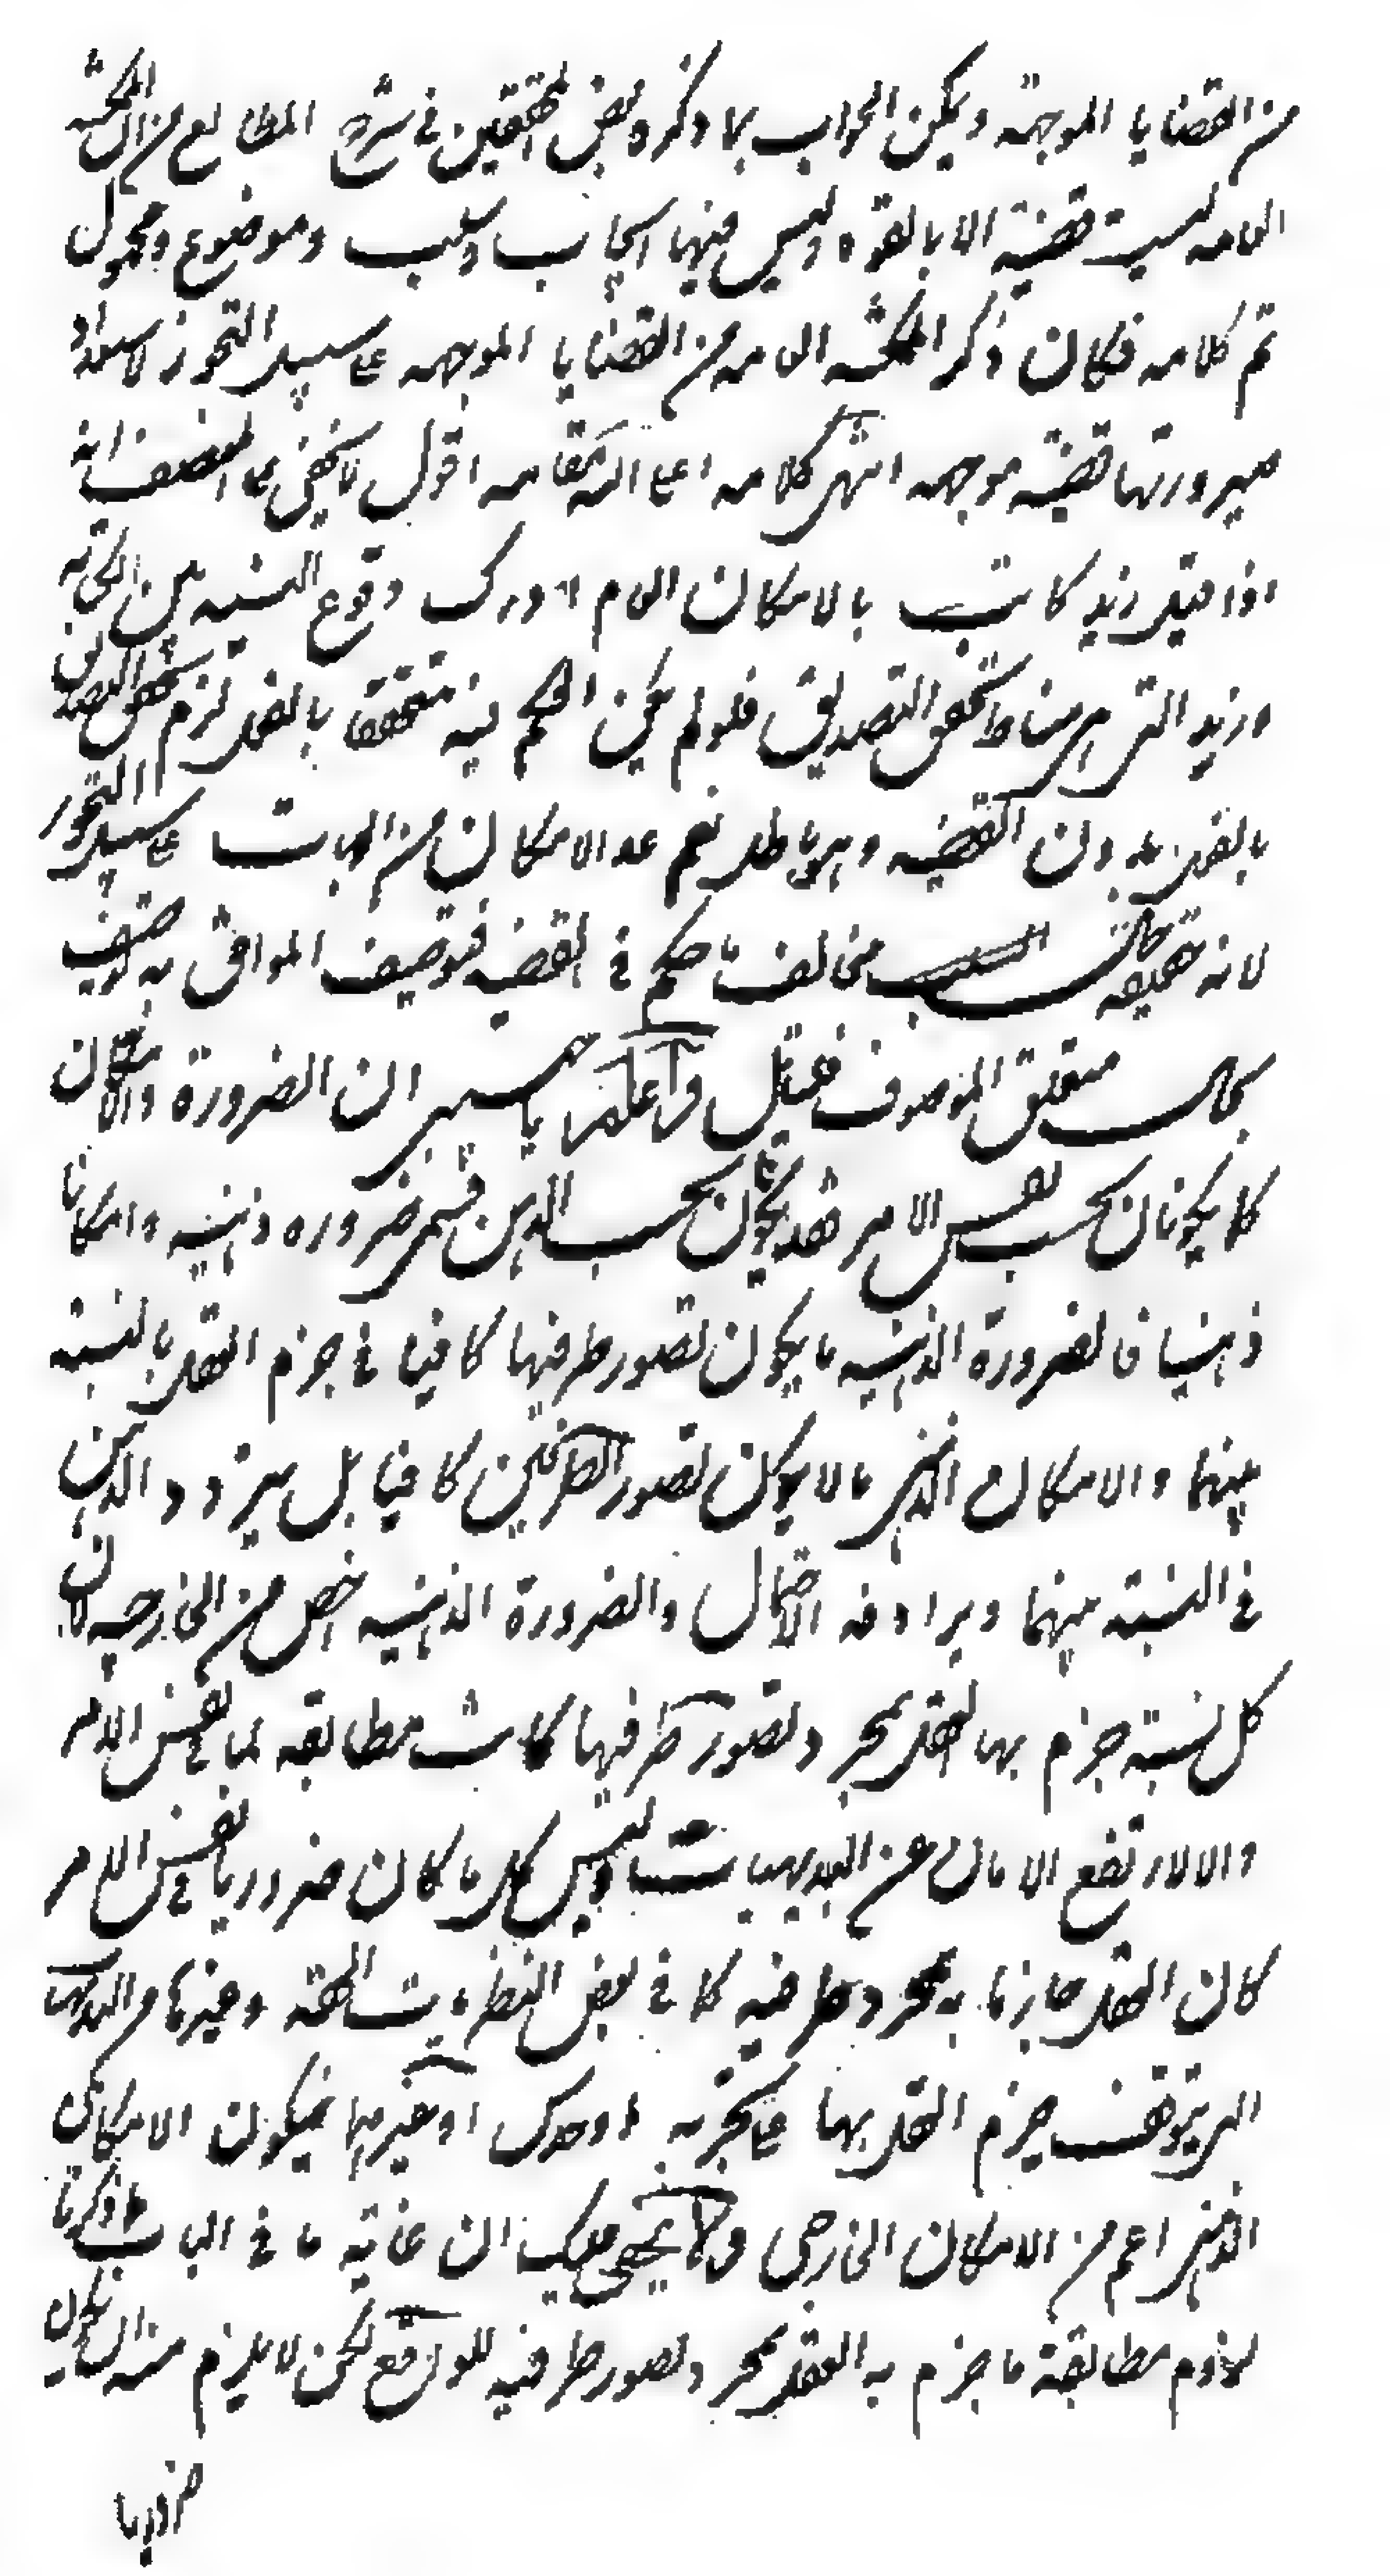 من القضايا الموجهة ويمكن الجواب بما ذكره بعض المحققين في شرح المطالع من ان الممكنة
العامه ليست قضية الا بالقوة وليس فيها ايجاب وسلب وموضوع ومحمول
تم كلامه فكان ذكر الممكنة العامه من القضايا الموجهه على سبيل التجوز لاستعداد
صيرورتها قضية موجهه انتهى كلامه اعلى الله مقامه اقول لا يخفى على المنصف انه
اذا قيل زيد كاتب بالامكان العام ادرك وقوع النسبه بين الكتابه
وزيد التي هي مناط تحقق التصديق فلو لم يكن الحكم فيه متحققا بالفعل لزم تحقق التصديق
بالفعل بدون القضيه وهو باطل نعم عد الامكان من الجهات على سبيل التجوز
لانه حقيقة حال النسبة مخالفت ما حكم في القضيه فتوصيف الموافق به توصيف
بحال متعلق الموصوف فتأمل واعلم يا حبيبي ان الضرورة والامكان
كما يكونان بحسب نفس الامر فقد يكونان بحسب الذهن فسمى ضروره ذهنيه وامكانا
ذهنيا فالضرورة الذهنيه ما يكون تصور طرفيها كافيا في جزم العقل بالنسبة
بينهما والامكان الذهني ما لا يكون تصور الطرفين كافيا بل يتردد الذهن
في النسبة بينهما ويرادفه الاحتمال والضرورة الذهنيه اخص من الخارجيه لان
كل نسبة جزم بها العقل بمجرد تصور طرفيها كانت مطابقه لما في نفس الامر
والا لارتفع الامان عن البديهيات وليس كل ما كان ضروريا في نفس الامر
كان العقل جازما به بمجرد طرفيه كما في بعض النظريات الحقة وغيرها من البديهيات
التي يتوقف جزم العقل بها على تجربه او حدس او غيرهما فيكون الامكان
الذهني اعم من الامكان الخارجي ولا يخفى عليك ان غاية ما في الباب مما ذكرنا
لزوم مطابقة ما جزم به العقل بمجرد تصور طرفيه للواقع لكن لا يلزم منه ان يكون
ضروريا